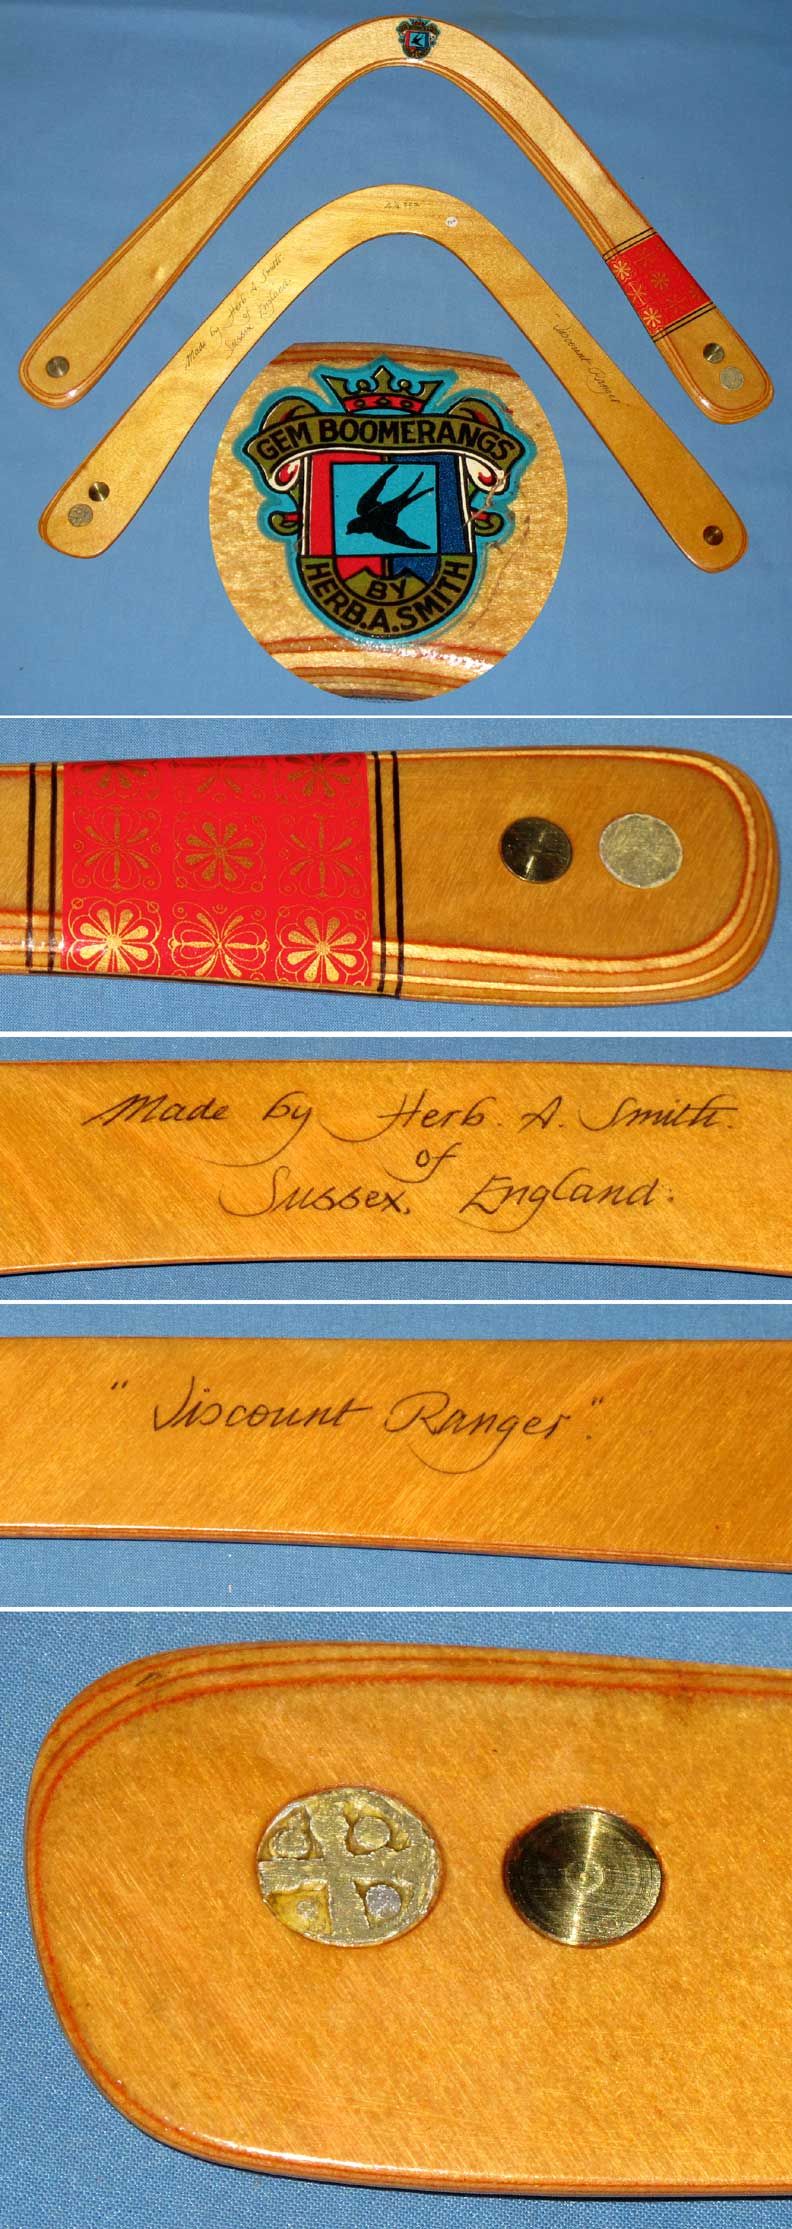 GEM BOOMERANGS
BY
HERB.A.SMITH
Made by Herb. A. Smith.
of
Sussex, England.
"Viscount Ranger"
GEM BOOMERANGS
BY
HERB.A.SMITH
Made by Herb. A. Smith.
of
Sussex, England.
"Viscount Ranger".